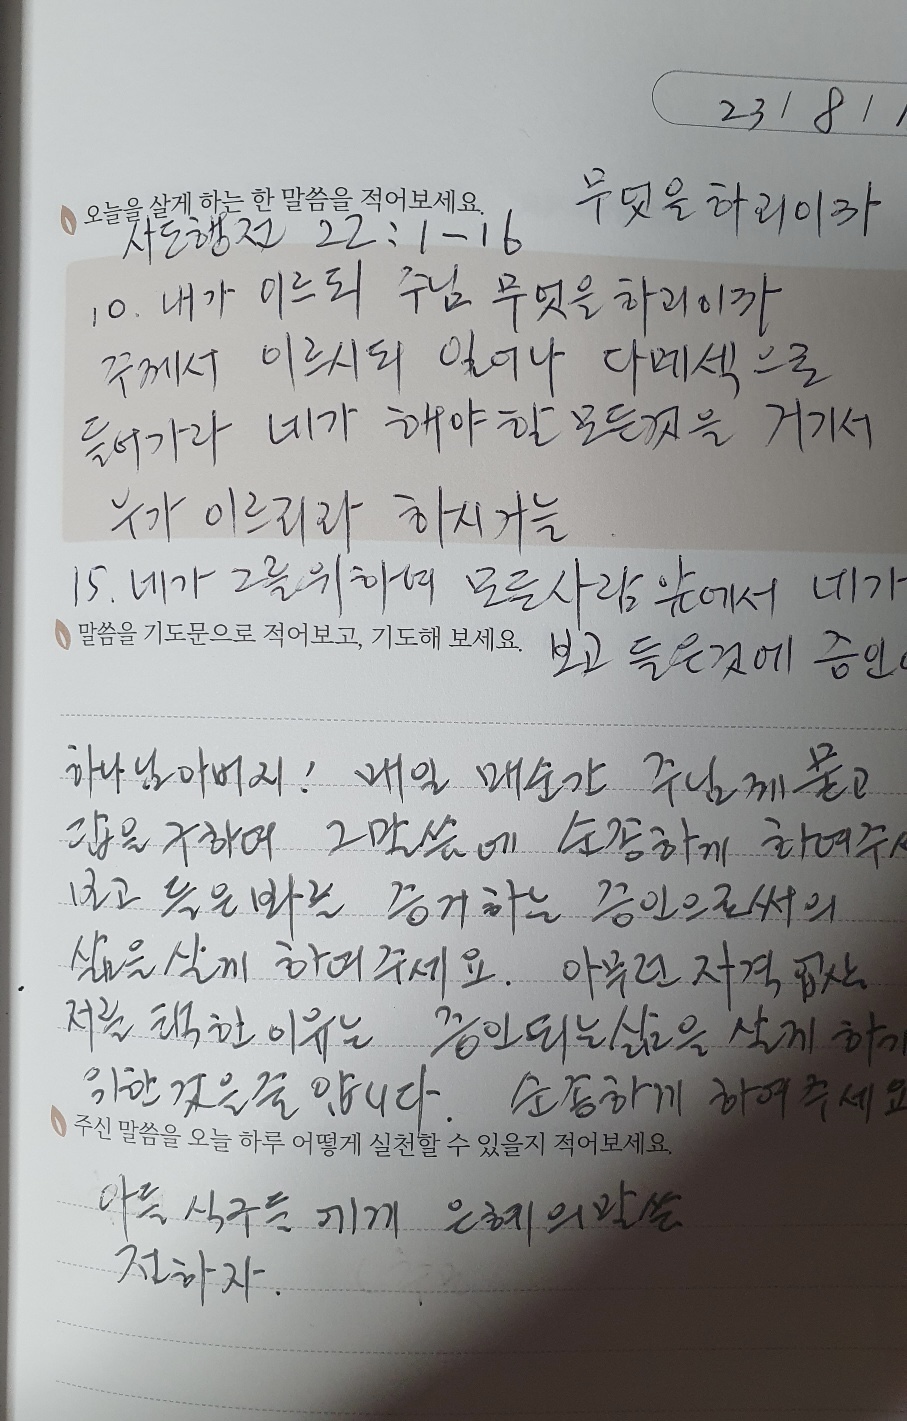 23 / 8 /
오늘을 살게 하는 한 말씀을 적어보세요.
무엇을 하리이까
사도행전 22:1-16
10. 내가 이르되 주님 무엇을 하리이까
주께서 이르시되 일어나 다메섹으로
들어가라 네가 해야 할 모든것을 거기서
누가 이르리라 하시거늘
15. 네가 그를 위하여 모든사람 앞에서 네가
말씀을 기도문으로 적어보고, 기도해 보세요.
보고 들은것에 증인
하나님 아버지! 매일 매순간 주님께 묻고
답을 구하여 그말씀에 순종하게 하여주
보고 들은 바를 증거하는 증인으로써의
삶을 살게 하여주세요. 아무런 자격 없는
저를 택한 이유는 증인되는 삶을 살게 하기
위한 것은줄 압니다. 순종하게 하여주세요
주신 말씀을 오늘 하루 어떻게 실천할 수 있을지 적어보세요.
아들 식구들 에게 은혜의 말씀
전하자.